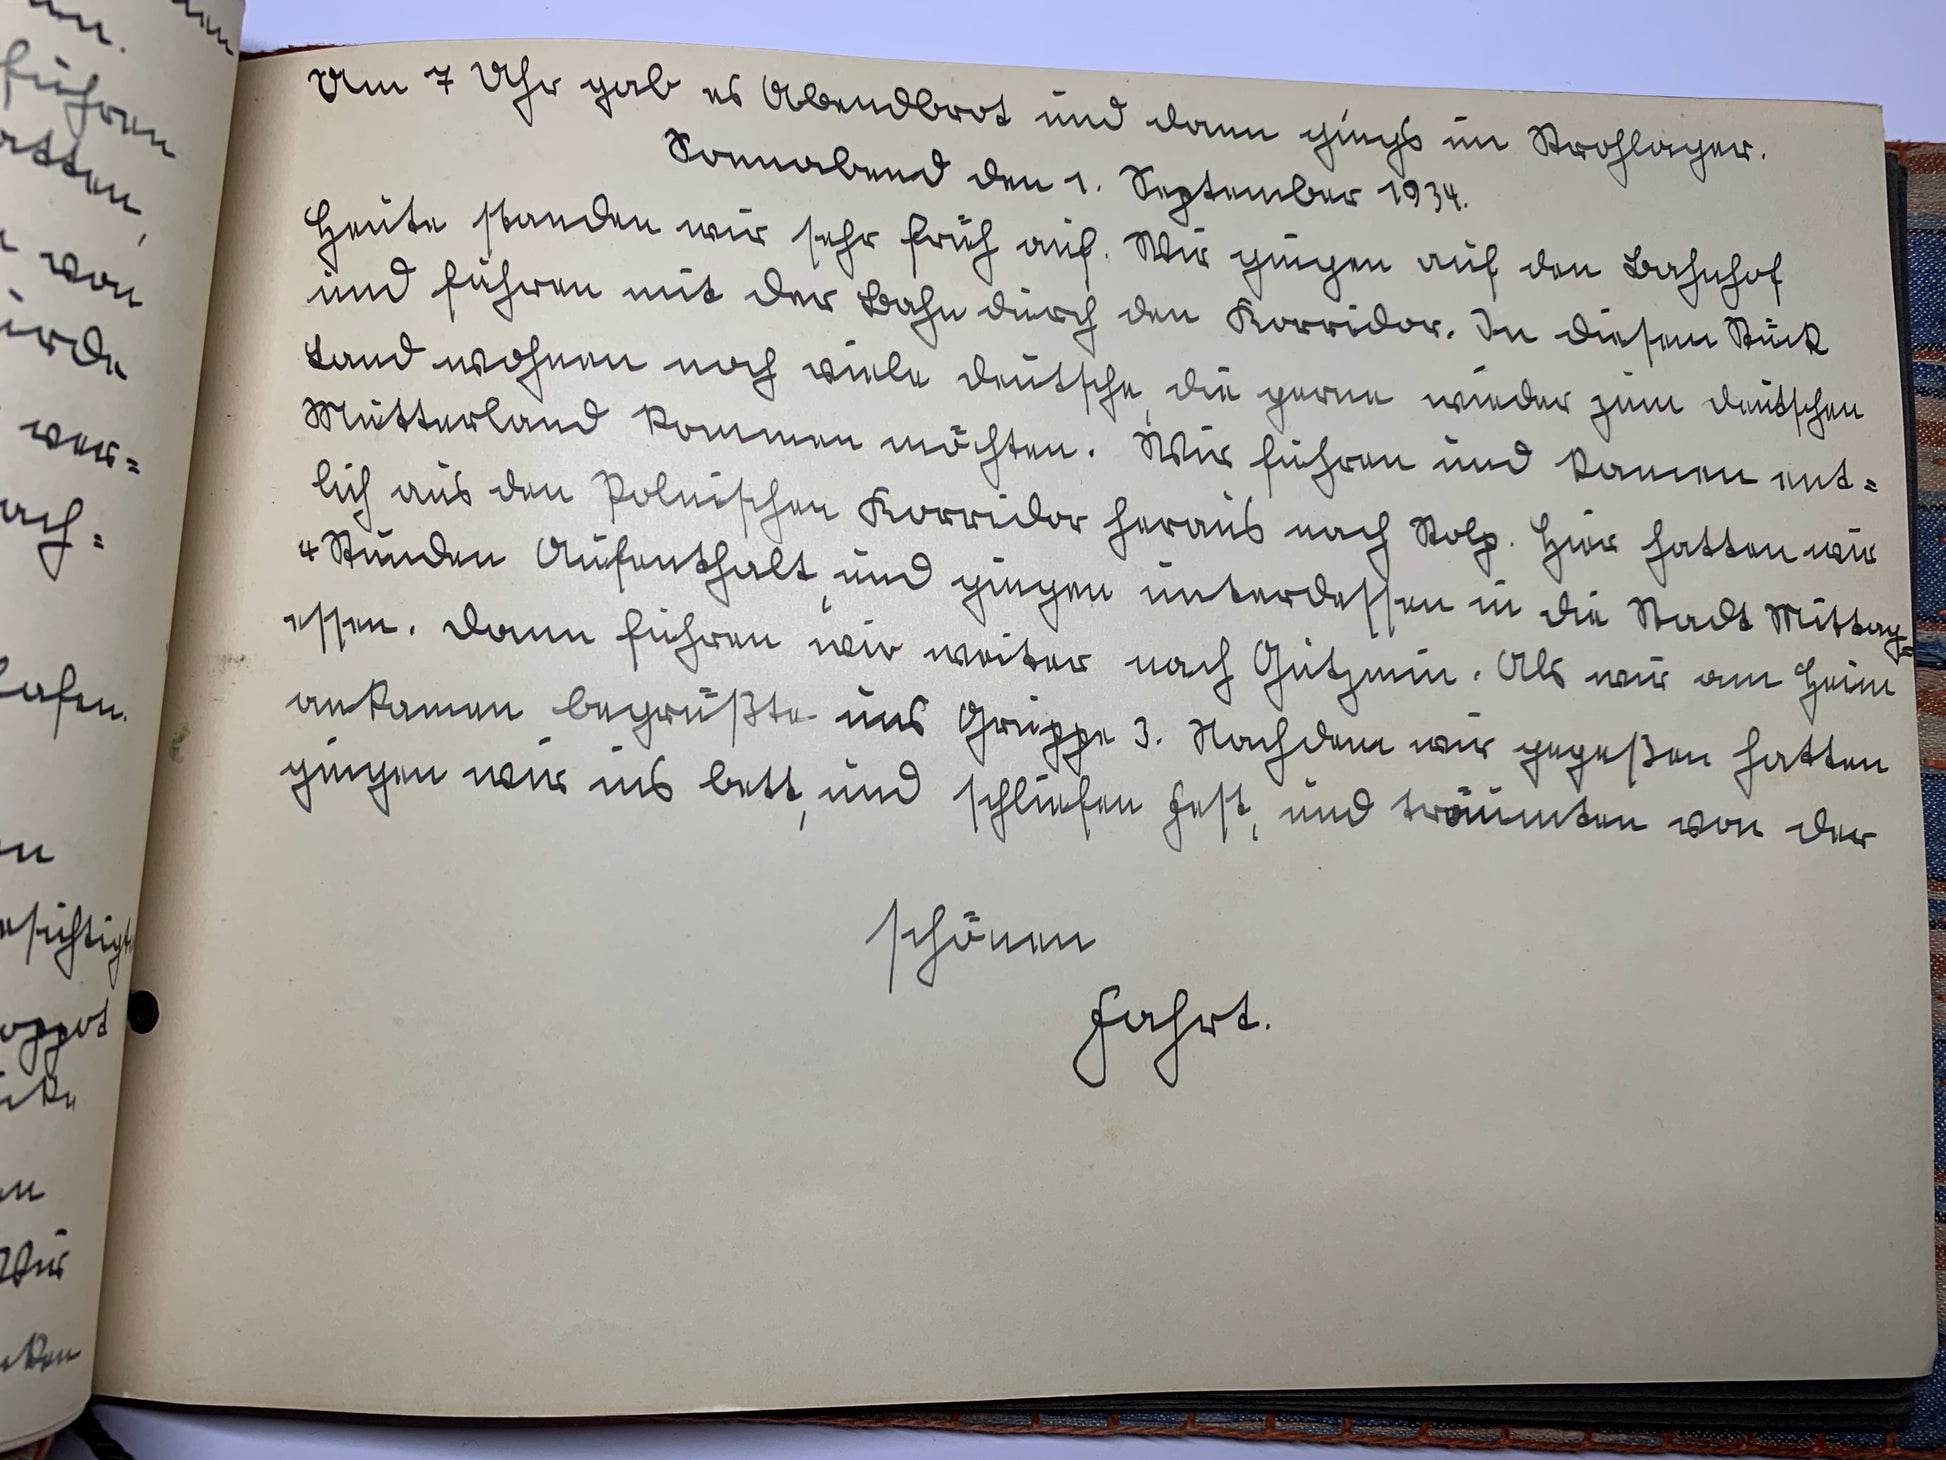 Um 7 Uhr gab es Abendbrot und dann gings im Strohlager.
Sonnabend den 1. September 1934.
Heute standen wir sehr früh auf. Wir gingen auf den Bahnhof
und fuhren mit der Bahn durch den Korridor. In diesem Stück
Land wohnen noch viele deutsche, die gerne wieder zum deutschen
Mutterland kommen möchten. Wir fuhren und kamen ent=
lich aus den Polnischen Korridor heraus nach Stolp. Hier hatten wir
4 Stunden Aufenthalt, und gingen unterdessen in die Stadt Mittag=
essen. Dann fuhren wir weiter nach Gutzmin. Als wir am Heim
ankamen begrüßte uns Gruppe 3. Nachdem wir gegeßen hatten
gingen wir ins bett, und schliefen fest, und träumten von der
schönen
Fahrt.
führen
von
wer=